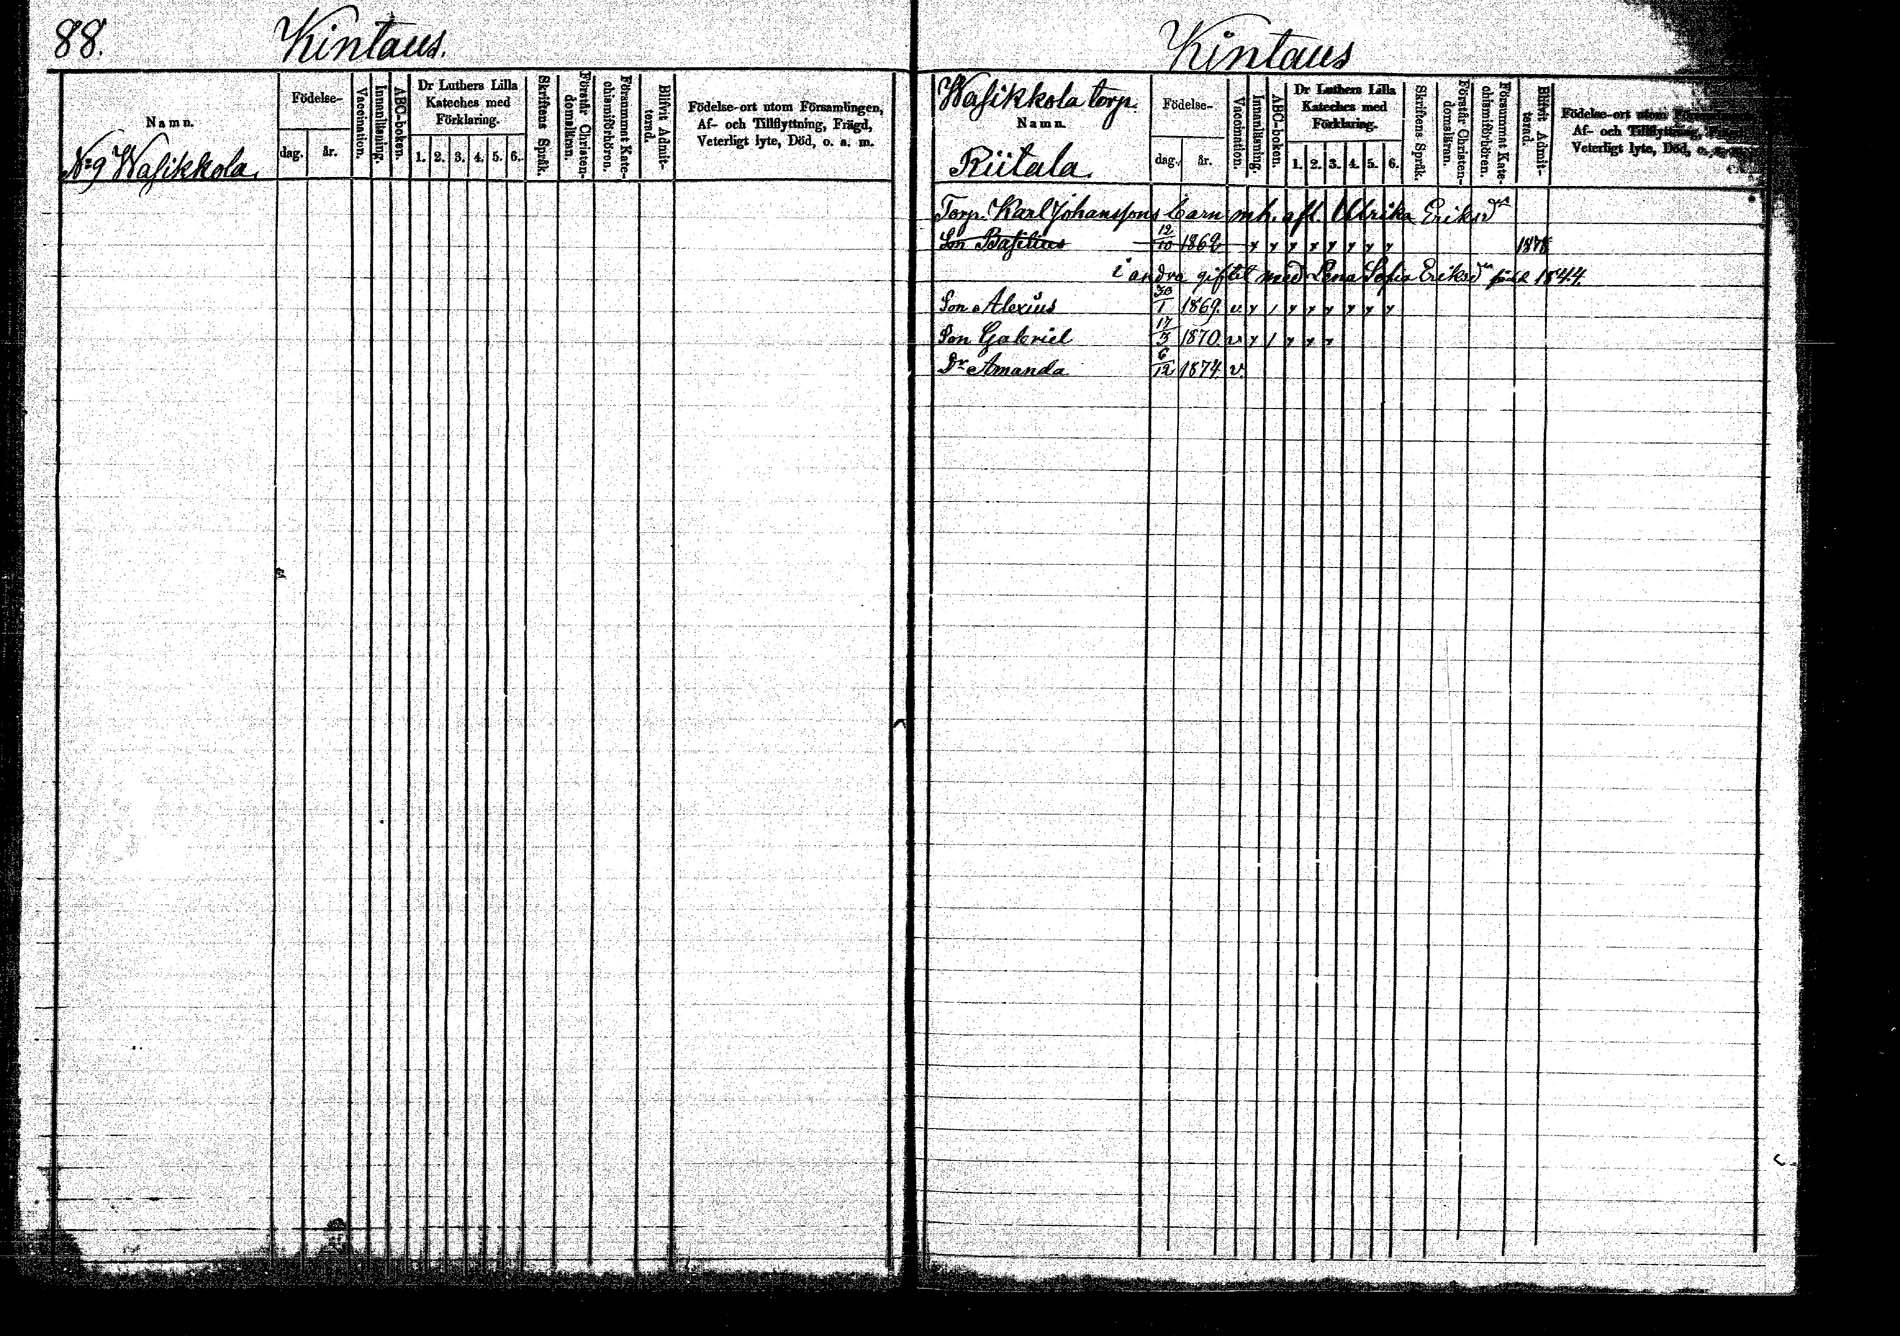 88.
Kintaus.
Namn.
Födelse-
dag.
år.
Vaccination.
Innanläsning.
ABC-boken.
Dr Luthers Lilla
Kateches med
Förklaring.
1. 2. 3. 4. 5. 6.
Skriftens Språk.
Förstår Christen-
domsläran.
Försummat Kate-
chismiförhören.
Blifvit Admit-
terad.
Födelse-ort utom Församlingen,
Af- och Tillflyttning, Frägd,
Veterligt lyte, Död, o. s. m.
No 9 Wasikkola.
Kintaus
Wasikkola torp.
Namn.
Riitala.
Födelse-
dag.
år.
Vaccination.
Innanläsning.
ABC-boken.
Dr Luthers Lilla
Kateches med
Förklaring.
1. 2. 3. 4. 5. 6.
Skriftens Språk.
Förstår Christen-
domsläran.
Försummat Kate-
chismiförhören.
Blifvit Admit-
terad.
Födelse-ort utom
Af- och Tillflyttning,
Veterligt lyte, Död, o.
Torp. Karl Johanssons barn m. h. afl. Ulrika Eriksdr
Son Basilius 12/10 1862
i andra giftet med Lena Sofia Eriksdr född 1844.
Son Alexius 30/1 1869. v.
Son Gabriel 17/3 1870. v
Dr Amanda 6/12 1874 v.